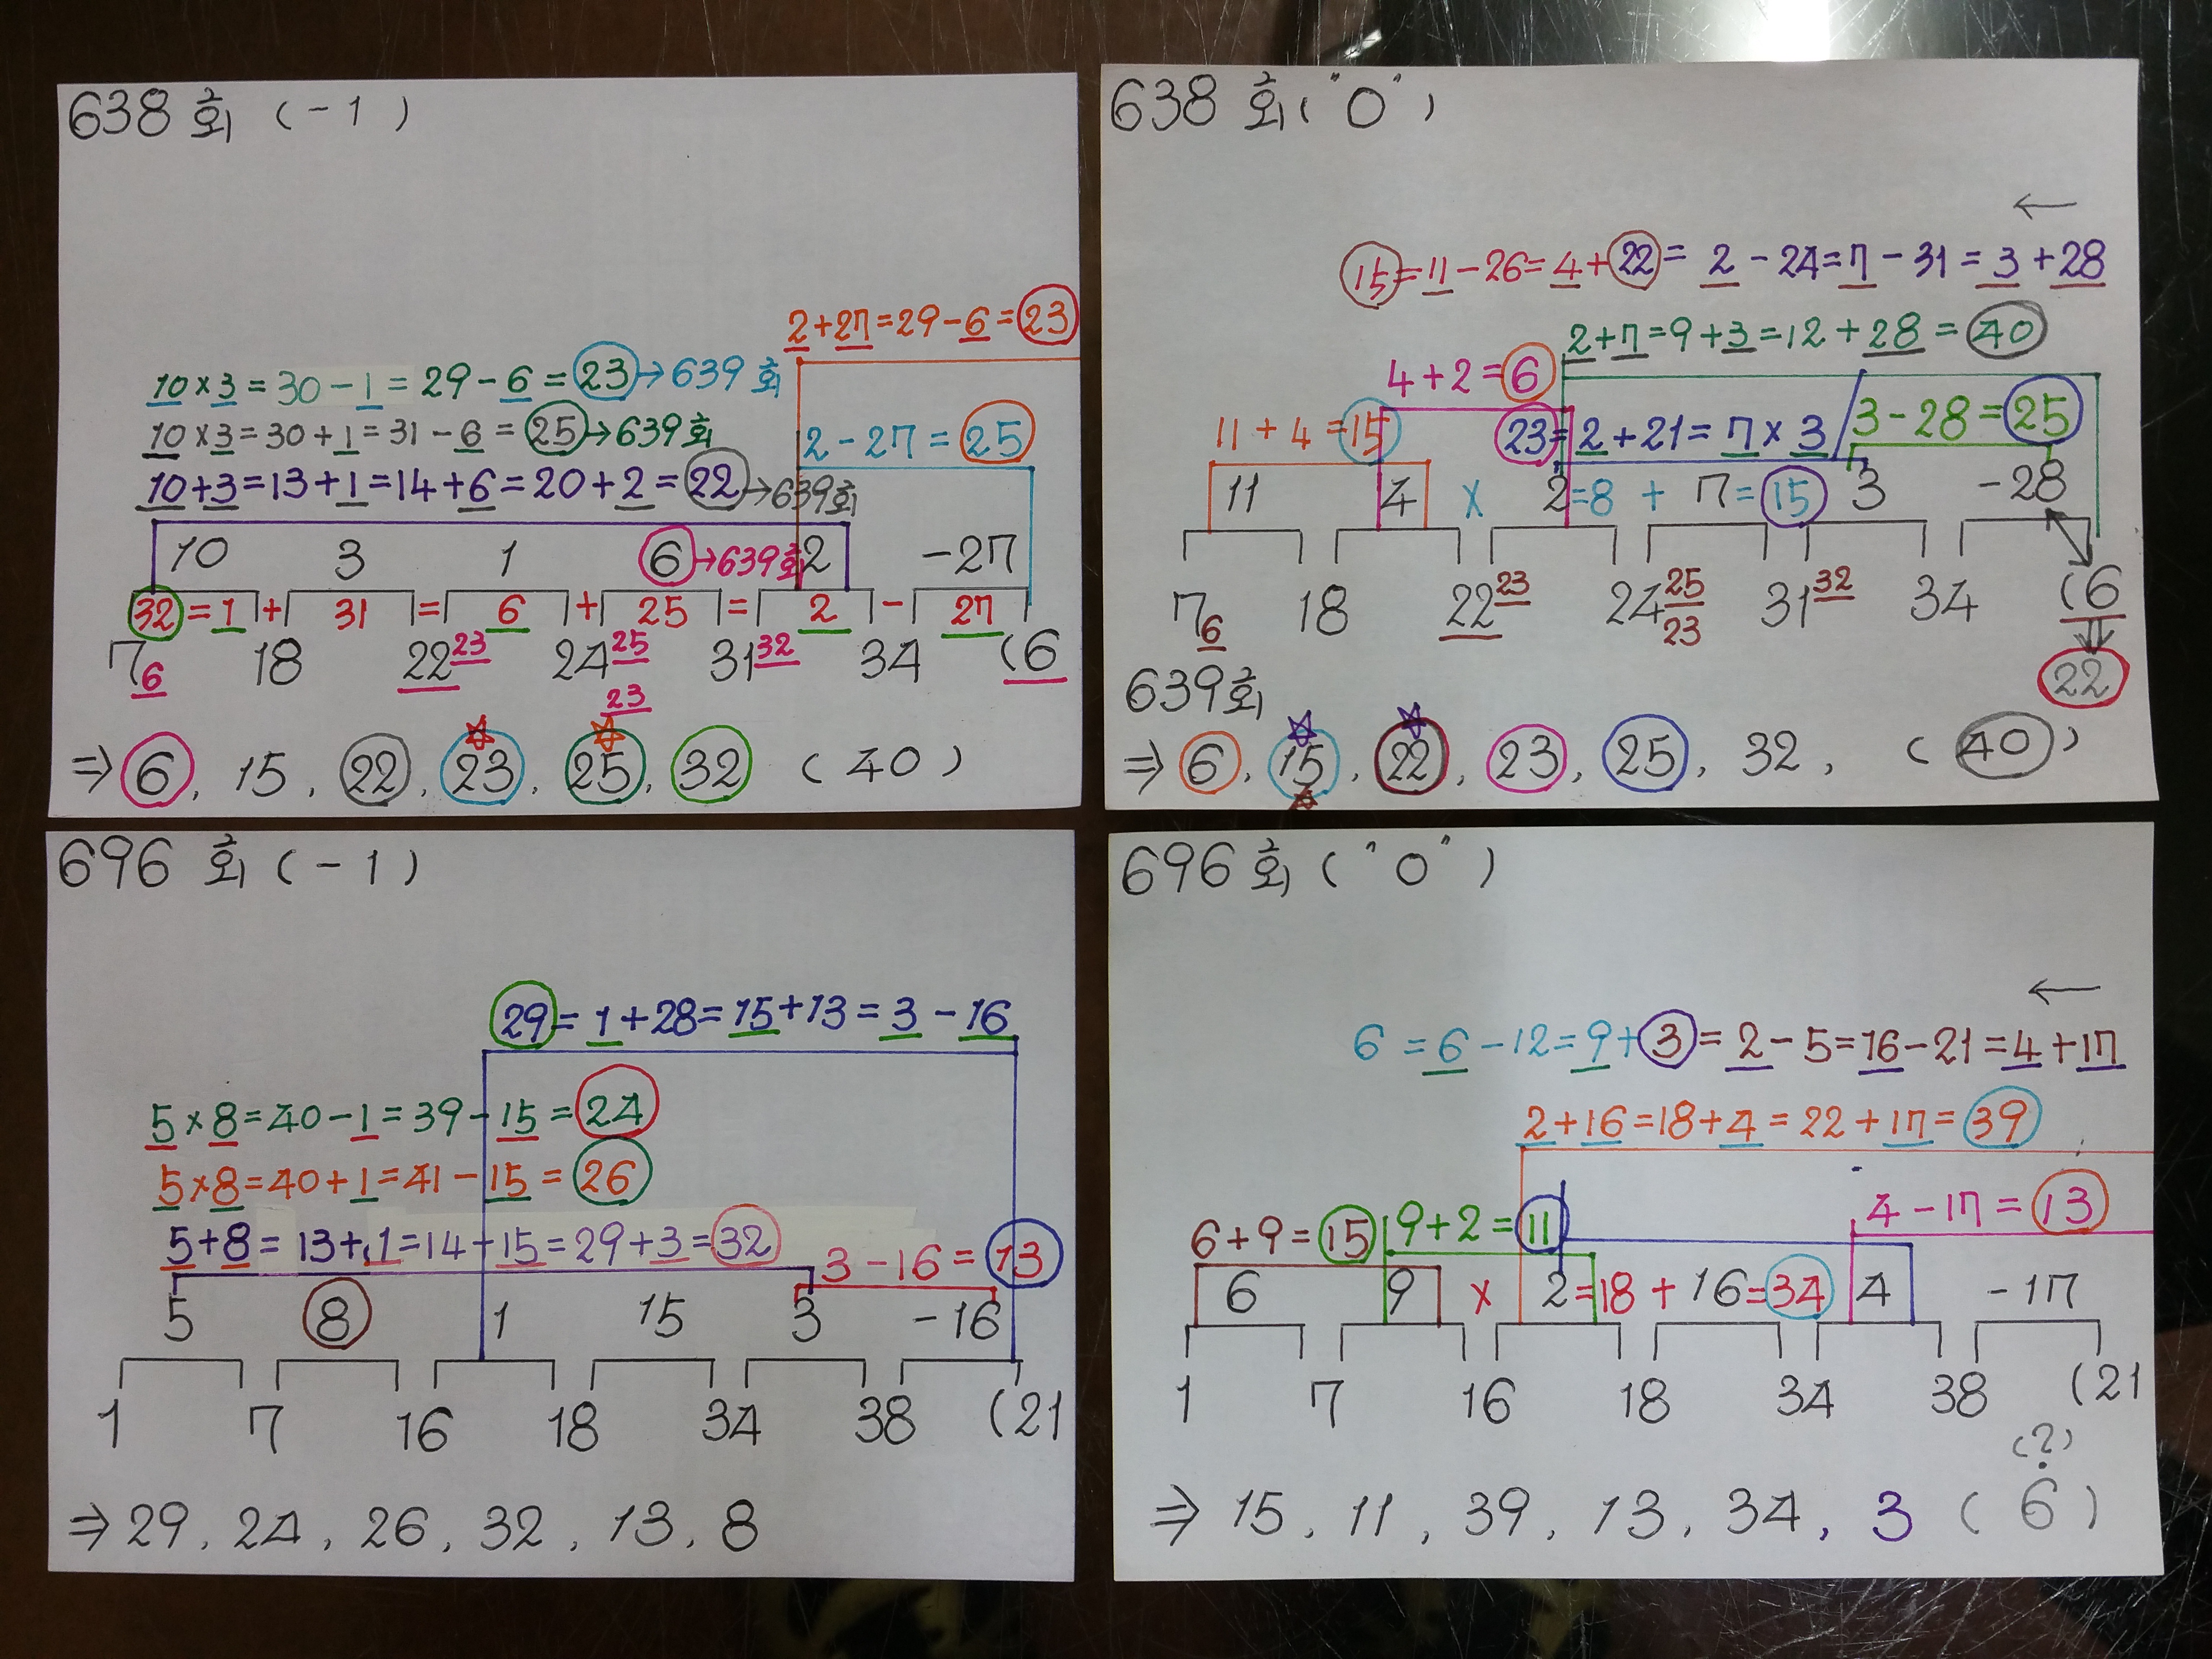 638 회 ( - 1 )
2+27=29-6=23
10×3=30-1=29-6=23→639회
10×3=30+1=31-6=25→639회
2-27=25
10+3=13+1=14+6=20+2=22→639회
10 3 1 6→639회 2 -27
32=1+31=6+25=2-27
7 6 18 22 23 24 25 31 32 34 (6
23
⇒ 6, 15, 22, 23, 25, 32 ( 40 )
638 회 ( "0" )
←
15=11-26=4+22=2-24=7-31=3+28
2+7=9+3=12+28=40
4+2=6
11+4=15
23=2+21=7×3/3-28=25
11 4 × 2=8+7=15 3 -28
7 6 18 22 23 24 25 31 32 34 (6
23
639회
22
⇒ 6, 15, 22, 23, 25, 32, ( 40 )
696 회 ( - 1 )
29=1+28=15+13=3-16
5×8=40-1=39-15=24
5×8=40+1=41-15=26
5+8=13+1=14+15=29+3=32
3-16=13
5 8 1 15 3 -16
1 7 16 18 34 38 (21
⇒ 29, 24, 26, 32, 13, 8
696 회 ( "0" )
←
6=6-12=9+3=2-5=16-21=4+17
2+16=18+4=22+17=39
6+9=15 9+2=11 4-17=13
6 9 × 2=18+16=34 4 -17
1 7 16 18 34 38 (21
(?)
⇒ 15, 11, 39, 13, 34, 3 ( 6 )